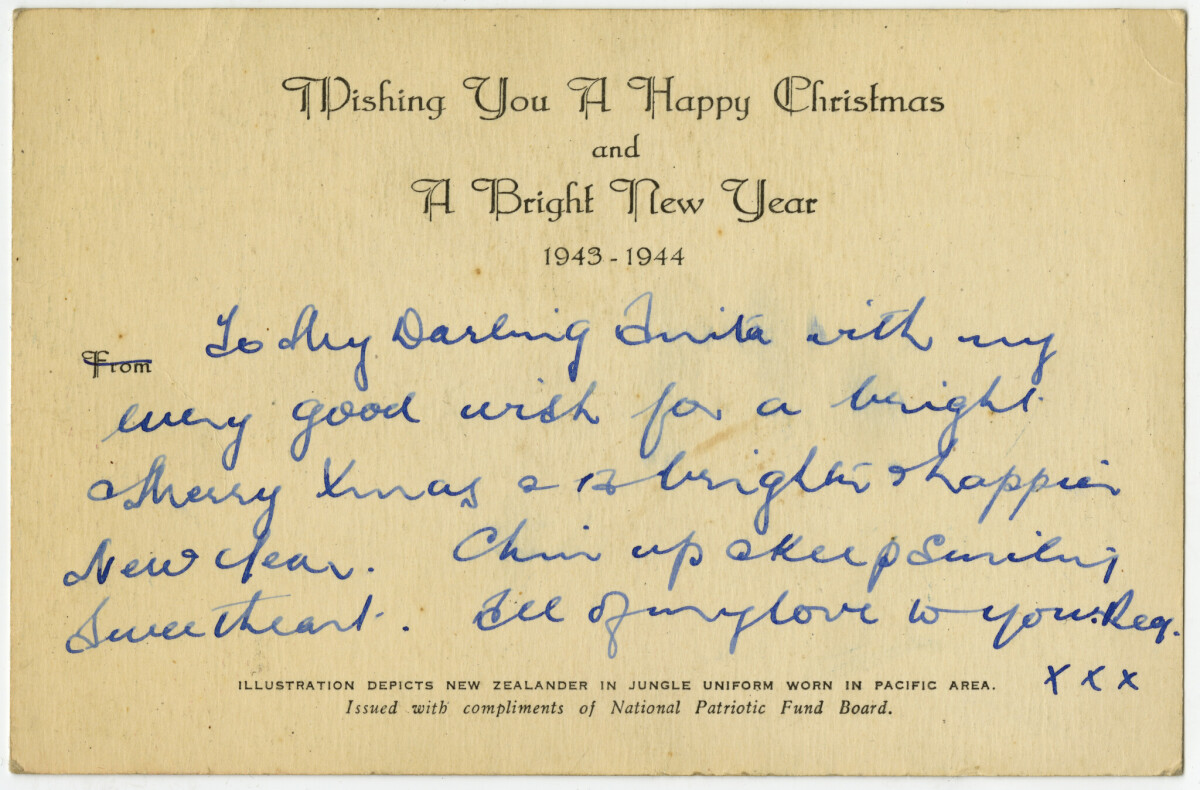 Wishing You A Happy Christmas
and
A Bright New Year
1943 - 1944
From To My Darling Anita with my
every good wish for a bright
Merry Xmas & a brighter & happier
New Year. Chin up & Keep Smiling
Sweetheart. All of my love to you. Reg.
x x x
ILLUSTRATION DEPICTS NEW ZEALANDER IN JUNGLE UNIFORM WORN IN PACIFIC AREA.
Issued with compliments of National Patriotic Fund Board.